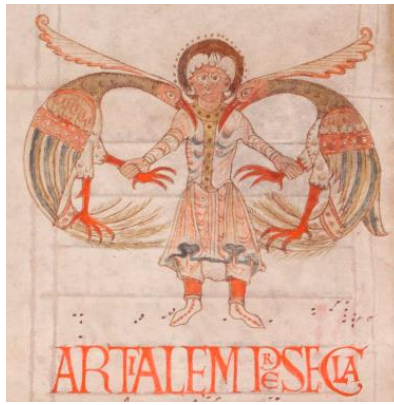 ARTIALEM PER SECLA